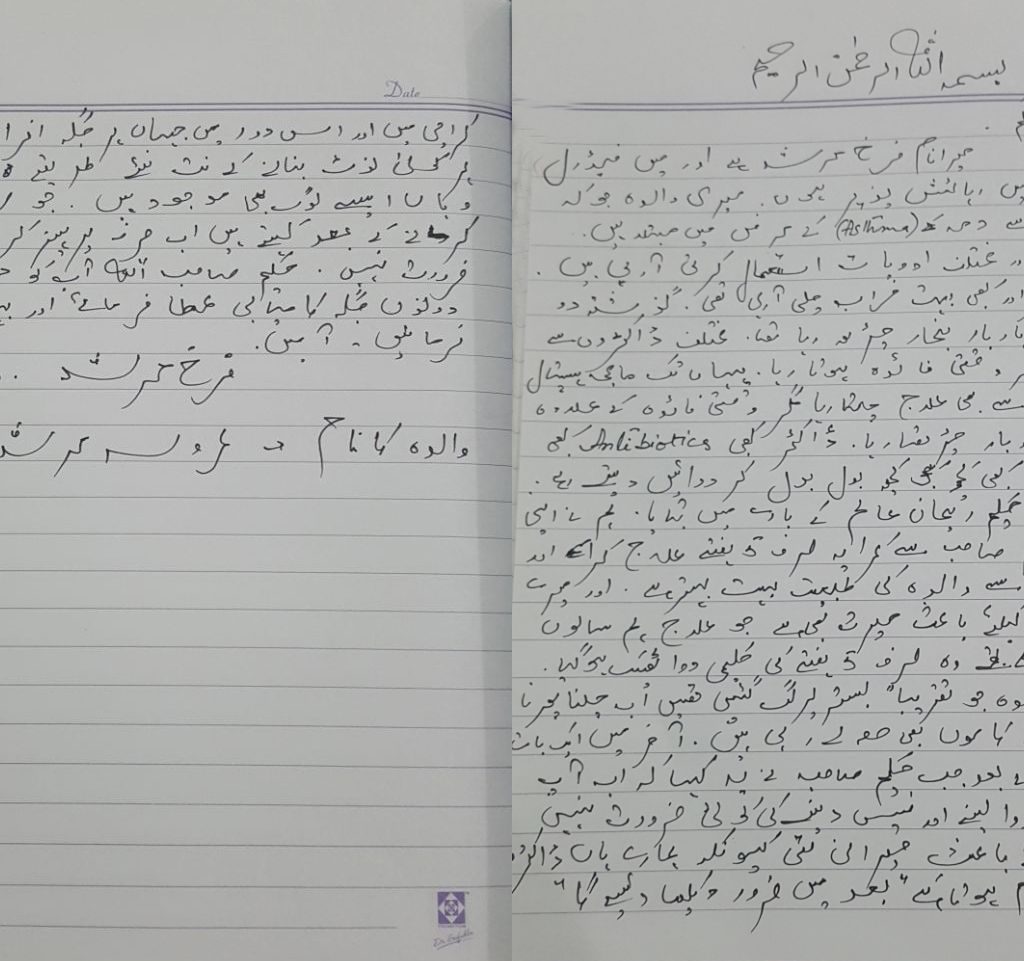 بسمہ اللہ الرحمٰن الرحیم
میرا نام فرخ مرشد ہے اور میں فیڈرل
میں رہائش پذیر ہوں. میری والدہ جو کہ
سے دمہ (Asthma) کے مرض میں مبتلا ہیں.
مختلف ادویات استعمال کرتی آ رہی ہیں.
اور کبھی بہت خراب چلی آ رہی تھی. گزشتہ دو
بار بار بخار چڑھ رہا تھا. مختلف ڈاکٹروں سے
وقتی فائدہ ہوتا رہا. یہاں تک ہسپتال
سے بھی علاج چلتا رہا مگر وقتی فائدہ کے علاوہ
بار چڑھتا رہا. ڈاکٹر کبھی Antibiotics کبھی
کبھی کچھ کبھی کچھ بول بول کر دوائیں دیتے رہے.
حکیم ریحان عالم کے بارے میں بتایا. ہم نے اپنی
صاحب سے صرف 5 ہفتے علاج کرا اور
سے والدہ کی طبیعت بہت بہتر ہے. اور میرے
کیلئے باعث حیرت بھی ہے جو علاج ہم سالوں
وہ صرف 5 ہفتے کی حکیمی دوا ہو گیا.
جو تقریباً بستر پر لگ گئی تھیں اب چلنا پھرنا
کاموں میں بھی حصہ لے رہی ہیں. آخر میں ایک بات
بعد جب حکیم صاحب نے یہ کہا کہ اب آپ
دوا لینے اور فیس دینے کی کوئی ضرورت نہیں
باعث حیرانی تھی کیونکہ ہمارے ہاں ڈاکٹرز
ہوتا ہے "بعد میں ضرور دکھا دیجیے گا"
Date
کراچی میں اور اس دور میں جہاں ہر جگہ
ہر کوئی لوٹ بنانے کے نت نئے طریقے
وہاں ایسے لوگ بھی موجود ہیں. جو
کرنے کے بعد کہتے ہیں اب صرف پرہیز کر
ضرورت نہیں. حکیم صاحب اللہ آپ کو
دونوں جگہ کامیابی عطا فرمائے اور
فرمائیں - آمین.
فرخ مرشد
والدہ کا نام عروسہ مرشد